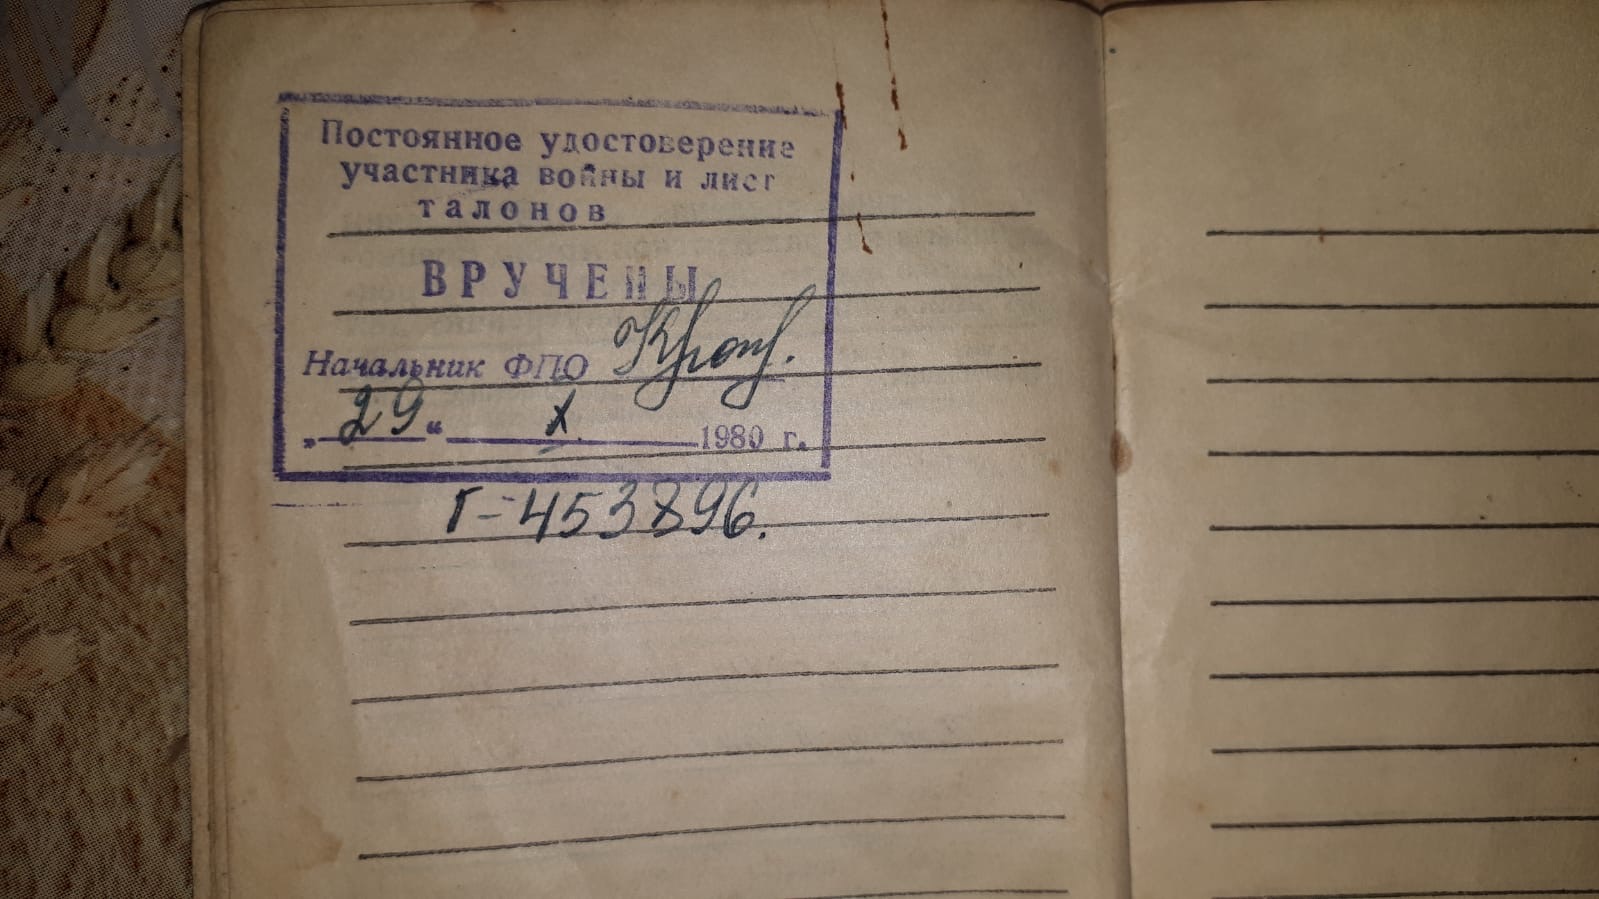 Постоянное удостоверение
участника войны и лист
талонов
ВРУЧЕНЫ
Начальник ФПО
„29“ X. 1980 г.
Г-453896.